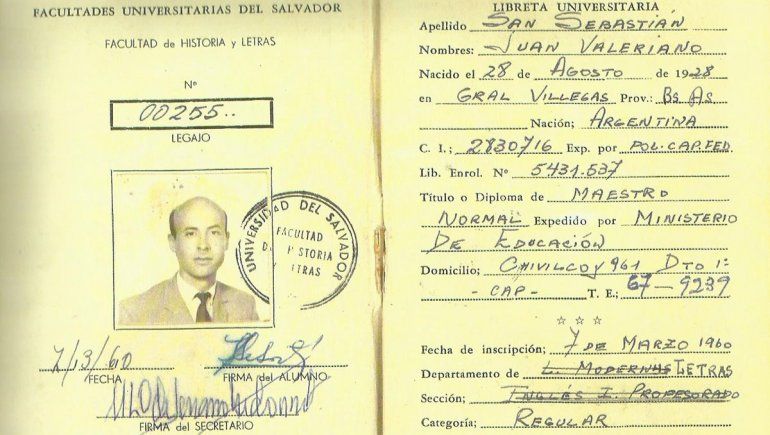 FACULTADES UNIVERSITARIAS DEL SALVADOR
FACULTAD de HISTORIA y LETRAS
Nº
00255..
LEGAJO
UNIVERSIDAD DEL SALVADOR
FACULTAD
DE HISTORIA
Y LETRAS
7/3/60
FECHA
FIRMA del ALUMNO
FIRMA del SECRETARIO
LIBRETA UNIVERSITARIA
Apellido San Sebastián
Nombres: Juan Valeriano
Nacido el 28 de Agosto de 1928
en Gral Villegas Prov.: Bs As
Nación; Argentina
C. I.; 2830716 Exp. por Pol. Cap. Fed.
Lib. Enrol. Nº 5431.537
Título o Diploma de Maestro
Normal Expedido por Ministerio
De Educación
Domicilio; Chivilcoy 961 Dto 1º
- CAP - T. E.; 67-9239
☆ ☆ ☆
Fecha de inscripción; 7 de Marzo 1960
Departamento de L. Modernas Letras
Sección; Inglés I. Profesorado
Categoría; Regular